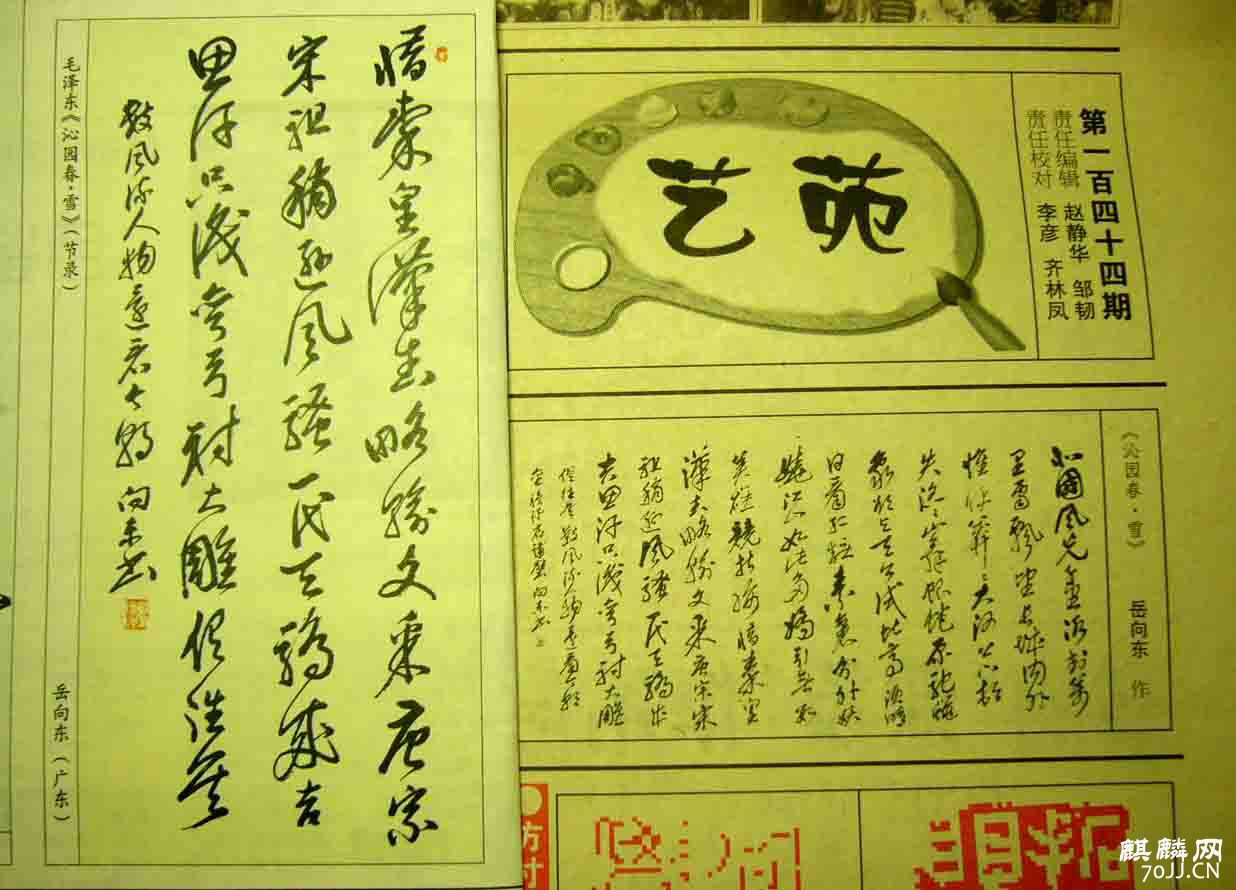 毛泽东《沁园春·雪》(节录)
岳向东(广东)
惜秦皇漢武略输文采唐宗
宋祖稍逊风骚一代天骄成吉
思汗只識弯弓射大雕俱往矣
数风流人物還看今朝 向东书
艺苑
第一百四十四期
责任编辑 赵静华 邹韧
责任校对 李彦 齐林凤
《沁园春·雪》 岳向东 作
北國风光千里冰封萬
里雪飘望长城内外
惟馀莽莽大河上下顿
失滔滔山舞银蛇原驰蜡
象欲与天公试比高须晴
日看红装素裹分外妖
娆江山如此多娇引無数
英雄競折腰惜秦皇
漢武略输文采唐宗宋
祖稍逊风骚一代天骄成
吉思汗只識弯弓射大雕
俱往矣数风流人物還看今朝
向东书
方寸
麒麟网
70JJ.CN